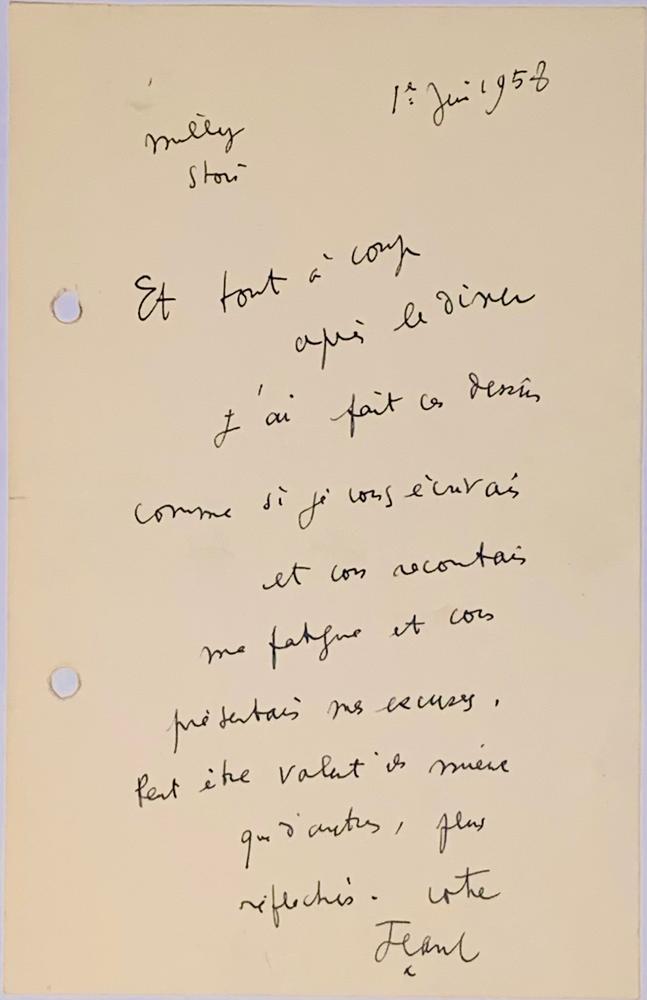 1er Juin 1958
Milly
Soir
Et tout à coup
après le diner
j'ai fait ces dessins
comme si je vous écrivais
et vous racontais
ma fatigue et vous
présentais mes excuses.
Peut être valent ils mieux
que d'autres, plus
réfléchis. votre
Jean